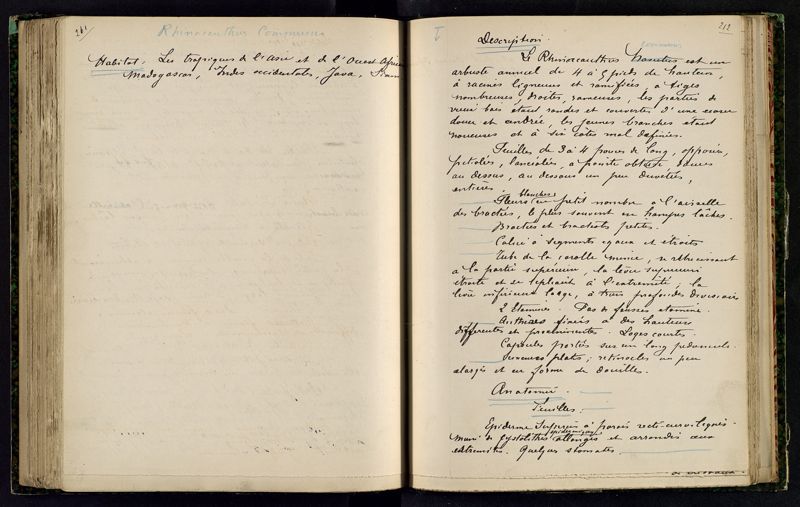 211
Rhinacanthus Communis
Habitat. Les tropiques de l'Asie et de l'Ouest Africain
Madagascar, Indes occidentales, Java, Siam
I
212
Description.
communis
Le Rhinacanthus est un
arbuste annuel de 4 à 5 pieds de hauteur,
à racines ligneuses et ramifiées, à tiges
nombreuses, droites, rameuses, les parties de
vieux bois étant rondes et couvertes d'une écorce
douce et cendrée, les jeunes branches étant
noueuses et à six côtes mal définies.
Feuilles de 3 à 4 pouces de long, opposées,
pétiolées, lancéolées, à pointe obtuse, douces
au dessus, au dessous un peu duvetées,
entières.
blanches
Fleurs en petit nombre à l'aisselle
des bractées, le plus souvent en hampes lâches.
Bractées et bractéoles petites.
Calice à segments égaux et étroits
Tube de la corolle mince, se rétrécissant
à la partie supérieure, la lèvre supérieure
étroite et se repliant à l'extrémité, la
lèvre inférieure large, à trois profondes divisions
2 Etamines. Pas de fausses étamines.
Anthères fixées à des hauteurs
différentes et proéminentes. Loges courtes.
Capsules portées sur un long pédoncule.
Semences plates; rétinacles un peu
élargis et en forme de douilles.
Anatomie.
Feuilles.
Epiderme supérieur à parois recti-curvilignes
muni de cystolithes allongés et arrondis aux
extrémités. Quelques stomates.